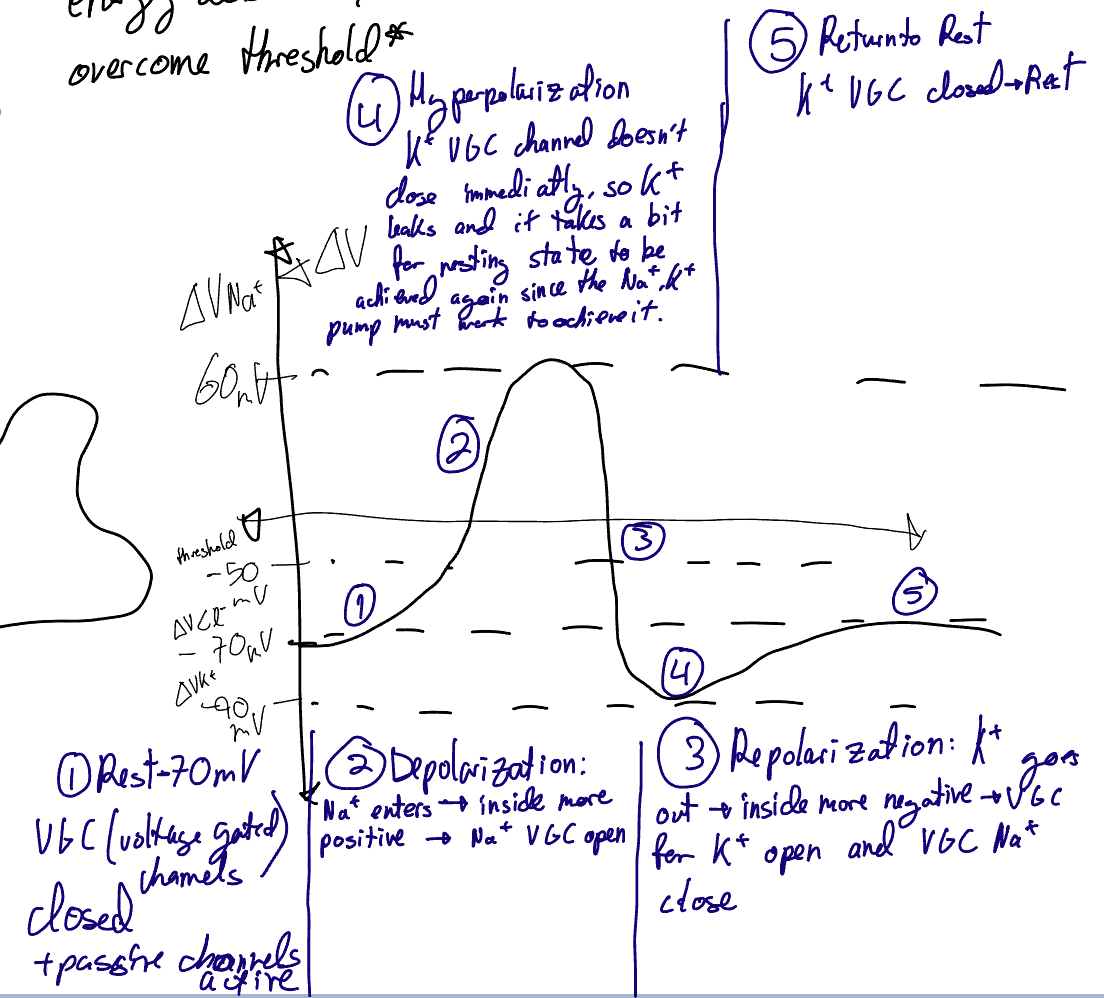 energy
overcome threshold*
④ Hyperpolarization
K⁺ VGC channel doesn't
close immediatly, so K⁺
leaks and it takes a bit
for resting state to be
achieved again since the Na⁺, K⁺
pump must work to achieve it.
⑤ Return to Rest
K⁺ VGC closed → Rest
ΔV
ΔVNa⁺
60mV
②
threshold
-50
mV
③
①
⑤
ΔVCl⁻
- 70mV
④
ΔVK⁺
-90
mV
① Rest-70mV
VGC (voltage gated)
channels
closed
+passive channels
active
② Depolarization:
Na⁺ enters → inside more
positive → Na⁺ VGC open
③ Repolarization: K⁺ goes
out → inside more negative → VGC
for K⁺ open and VGC Na⁺
close